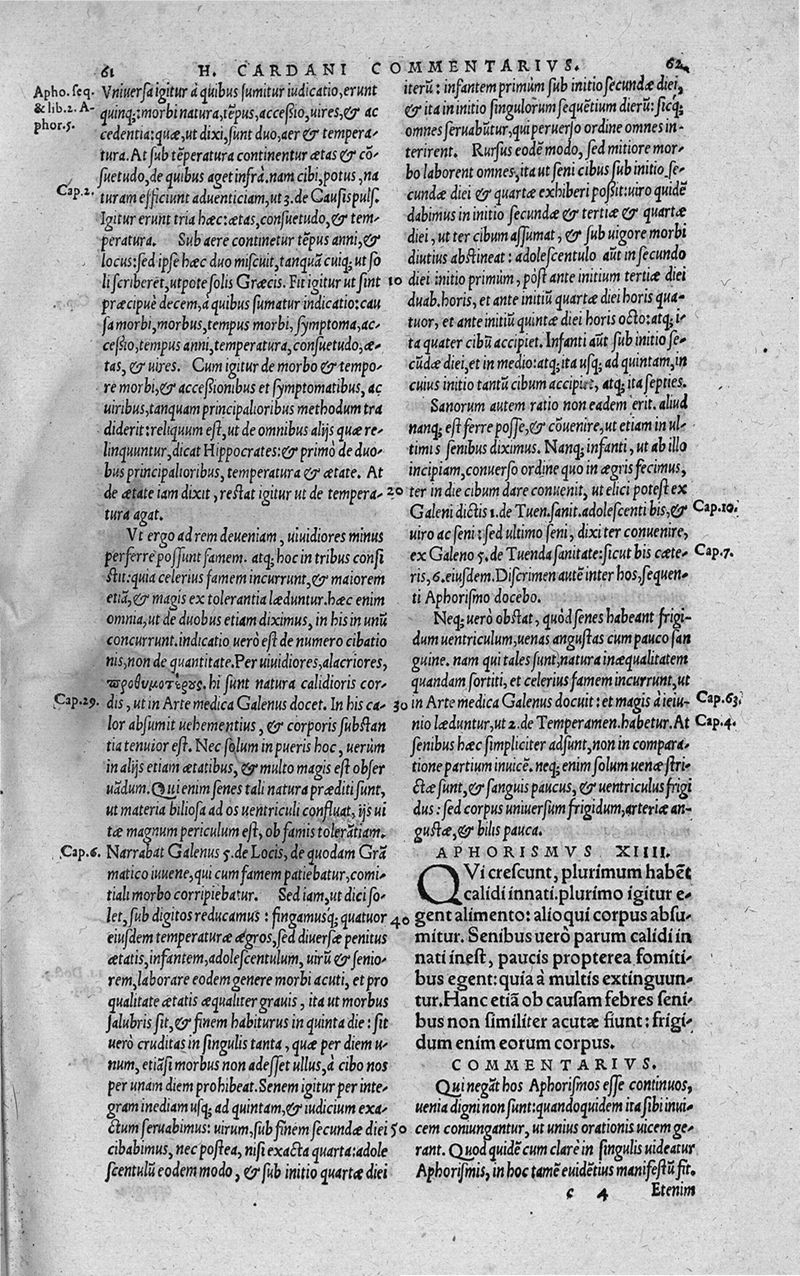 61 H. CARDANI COMMENTARIVS. 62
Apho. seq.
& lib. 2. A-
phor. 5.
Vniuersa igitur à quibus sumitur iudicatio, erunt
quinq;: morbi natura, tẽpus, accessio, uires, & ac
cedentia: quæ, ut dixi, sunt duo, aer & tempera-
tura. At sub tẽperatura continentur ætas & cõ-
suetudo, de quibus aget infrà. nam cibi, potus, na
Cap. 2.
turam efficiunt aduenticiam, ut 3. de Causis puls.
Igitur erunt tria hæc: ætas, consuetudo, & tem-
peratura. Sub aere continetur tẽpus anni, &
locus: sed ipse hæc duo miscuit, tanquã cuiq; ut so
li scriberet, utpote solis Græcis. Fit igitur ut sint
10
præcipuè decem, à quibus sumatur indicatio: cau
sa morbi, morbus, tempus morbi, symptoma, ac-
cessio, tempus anni, temperatura, consuetudo, æ-
tas, & uires. Cum igitur de morbo & tempo-
re morbi, & accessionibus et symptomatibus, ac
uiribus, tanquam principalioribus methodum tra
diderit: reliquum est, ut de omnibus alijs quæ re-
linquuntur, dicat Hippocrates: & primò de duo-
bus principalioribus, temperatura & ætate. At
de ætate iam dixit, restat igitur ut de tempera-
20
tura agat.
Vt ergo ad rem deueniam, uiuidiores minus
perferre possunt famem. atq; hoc in tribus consi
stit: quia celerius famem incurrunt, & maiorem
etiã, & magis ex tolerantia læduntur. hæc enim
omnia, ut de duobus etiam diximus, in his in unũ
concurrunt. indicatio uerò est de numero cibatio
nis, non de quantitate. Per uiuidiores, alacriores,
προθυμοτέρους. hi sunt natura calidioris cor-
Cap. 29.
dis, ut in Arte medica Galenus docet. In his ca-
30
lor absumit uehementius, & corporis substan
tia tenuior est. Nec solum in pueris hoc, uerùm
in alijs etiam ætatibus, & multo magis est obser
uãdum. Qui enim senes tali natura præditi sunt,
ut materia biliosa ad os uentriculi confluat, ijs ui
tæ magnum periculum est, ob famis tolerãtiam.
Cap. 6.
Narrabat Galenus 5. de Locis, de quodam Grã
matico iuuene, qui cum famem patiebatur, comi-
tiali morbo corripiebatur. Sed iam, ut dici so-
let, sub digitos reducamus: fingamusq; quatuor
40
eiusdem temperaturæ ægros, sed diuersæ penitus
ætatis, infantem, adolescentulum, uirũ & senio-
rem, laborare eodem genere morbi acuti, et pro
qualitate ætatis æqualiter grauis, ita ut morbus
salubris sit, & finem habiturus in quinta die: sit
uerò cruditas in singulis tanta, quæ per diem u-
num, etiãsi morbus non adesset ullus, à cibo nos
per unam diem prohibeat. Senem igitur per inte-
gram inediam usq; ad quintam, & iudicium exa-
ctum seruabimus: uirum, sub finem secundæ diei
50
cibabimus, nec postea, nisi exacta quarta: adole
scentulũ eodem modo, & sub initio quartæ diei
iterũ: infantem primùm sub initio secundæ diei,
& ita in initio singulorum sequẽtium dierũ: sicq;
omnes seruabũtur, qui peruerso ordine omnes in-
terirent. Rursus eodẽ modo, sed mitiore mor-
bo laborent omnes, ita ut seni cibus sub initio se-
cundæ diei & quartæ exhiberi possit: uiro quidẽ
dabimus in initio secundæ & tertiæ & quartæ
diei, ut ter cibum assumat, & sub uigore morbi
diutius abstineat: adolescentulo aũt in secundo
diei initio primùm, pòst ante initium tertiæ diei
duab. horis, et ante initiũ quartæ diei horis qua-
tuor, et ante initiũ quintæ diei horis octo: atq; i-
ta quater cibũ accipiet. Infanti aũt sub initio se-
cũdæ diei, et in medio: atq; ita usq; ad quintam, in
cuius initio tantũ cibum accipiet, atq; ita septies.
Sanorum autem ratio non eadem erit. aliud
nanq; est ferre posse, & cõuenire, ut etiam in ul-
timis senibus diximus. Nanq; infanti, ut ab illo
incipiam, conuerso ordine quo in ægris fecimus,
ter in die cibum dare conuenit, ut elici potest ex
Galeni dictis 1. de Tuen. sanit. adolescenti bis, &
Cap. 10.
uiro ac seni: sed ultimo seni, dixi ter conuenire,
ex Galeno 5. de Tuenda sanitate: sicut bis cæte-
Cap. 7.
ris, 6. eiusdem. Discrimen autẽ inter hos, sequen-
ti Aphorismo docebo.
Neq; uerò obstat, quòd senes habeant frigi-
dum uentriculum, uenas angustas cum pauco san
guine. nam qui tales sunt, natura inæqualitatem
quandam sortiti, et celerius famem incurrunt, ut
in Arte medica Galenus docuit: et magis à ieiu-
Cap. 63.
nio læduntur, ut 2. de Temperamen. habetur. At
Cap. 4.
senibus hæc simpliciter adsunt, non in compara-
tione partium inuicẽ. neq; enim solum uenæ stri-
ctæ sunt, & sanguis paucus, & uentriculus frigi
dus: sed corpus uniuersum frigidum, arteriæ an-
gustæ, & bilis pauca.
APHORISMVS XIIII.
QVi crescunt, plurimum habẽt
calidi innati. plurimo igitur e-
gent alimento: alioqui corpus absu-
mitur. Senibus uerò parum calidi in
nati inest, paucis propterea fomiti-
bus egent: quia à multis extinguun-
tur. Hanc etiã ob causam febres seni-
bus non similiter acutæ fiunt: frigi-
dum enim eorum corpus.
COMMENTARIVS.
Qui negãt hos Aphorismos esse continuos,
uenia digni non sunt: quandoquidem ita sibi inui-
cem coniungantur, ut unius orationis uicem ge-
rant. Quod quidẽ cum clarè in singulis uideatur
Aphorismis, in hoc tamẽ euidẽtius manifestũ fit.
c 4 Etenim